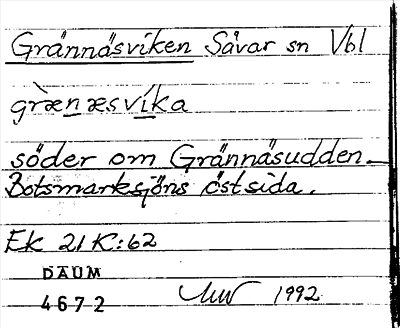 Grännäsviken Sävar sn Vbl
græ̀næsvíka
söder om Grännäsudden_
Botsmarksjöns östsida.
Ek 21 K:62
DAUM
4672 1992